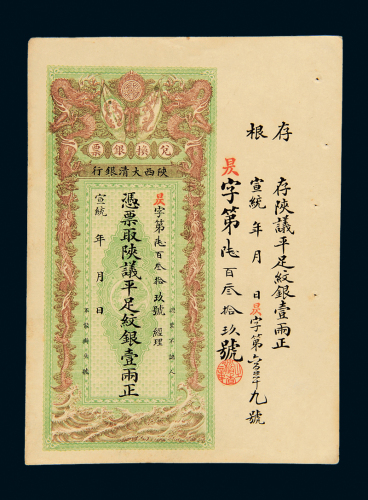 存根
存陝議平足紋銀壹兩正
宣統 年 月 日昃字第六百三十九號
昃字第陸百叁拾玖號
兌換銀票
陝西大清銀行
昃字第陸百叁拾玖號 經理
憑票取陝議平足紋銀壹兩正
宣統 年 月 日
認票不認人